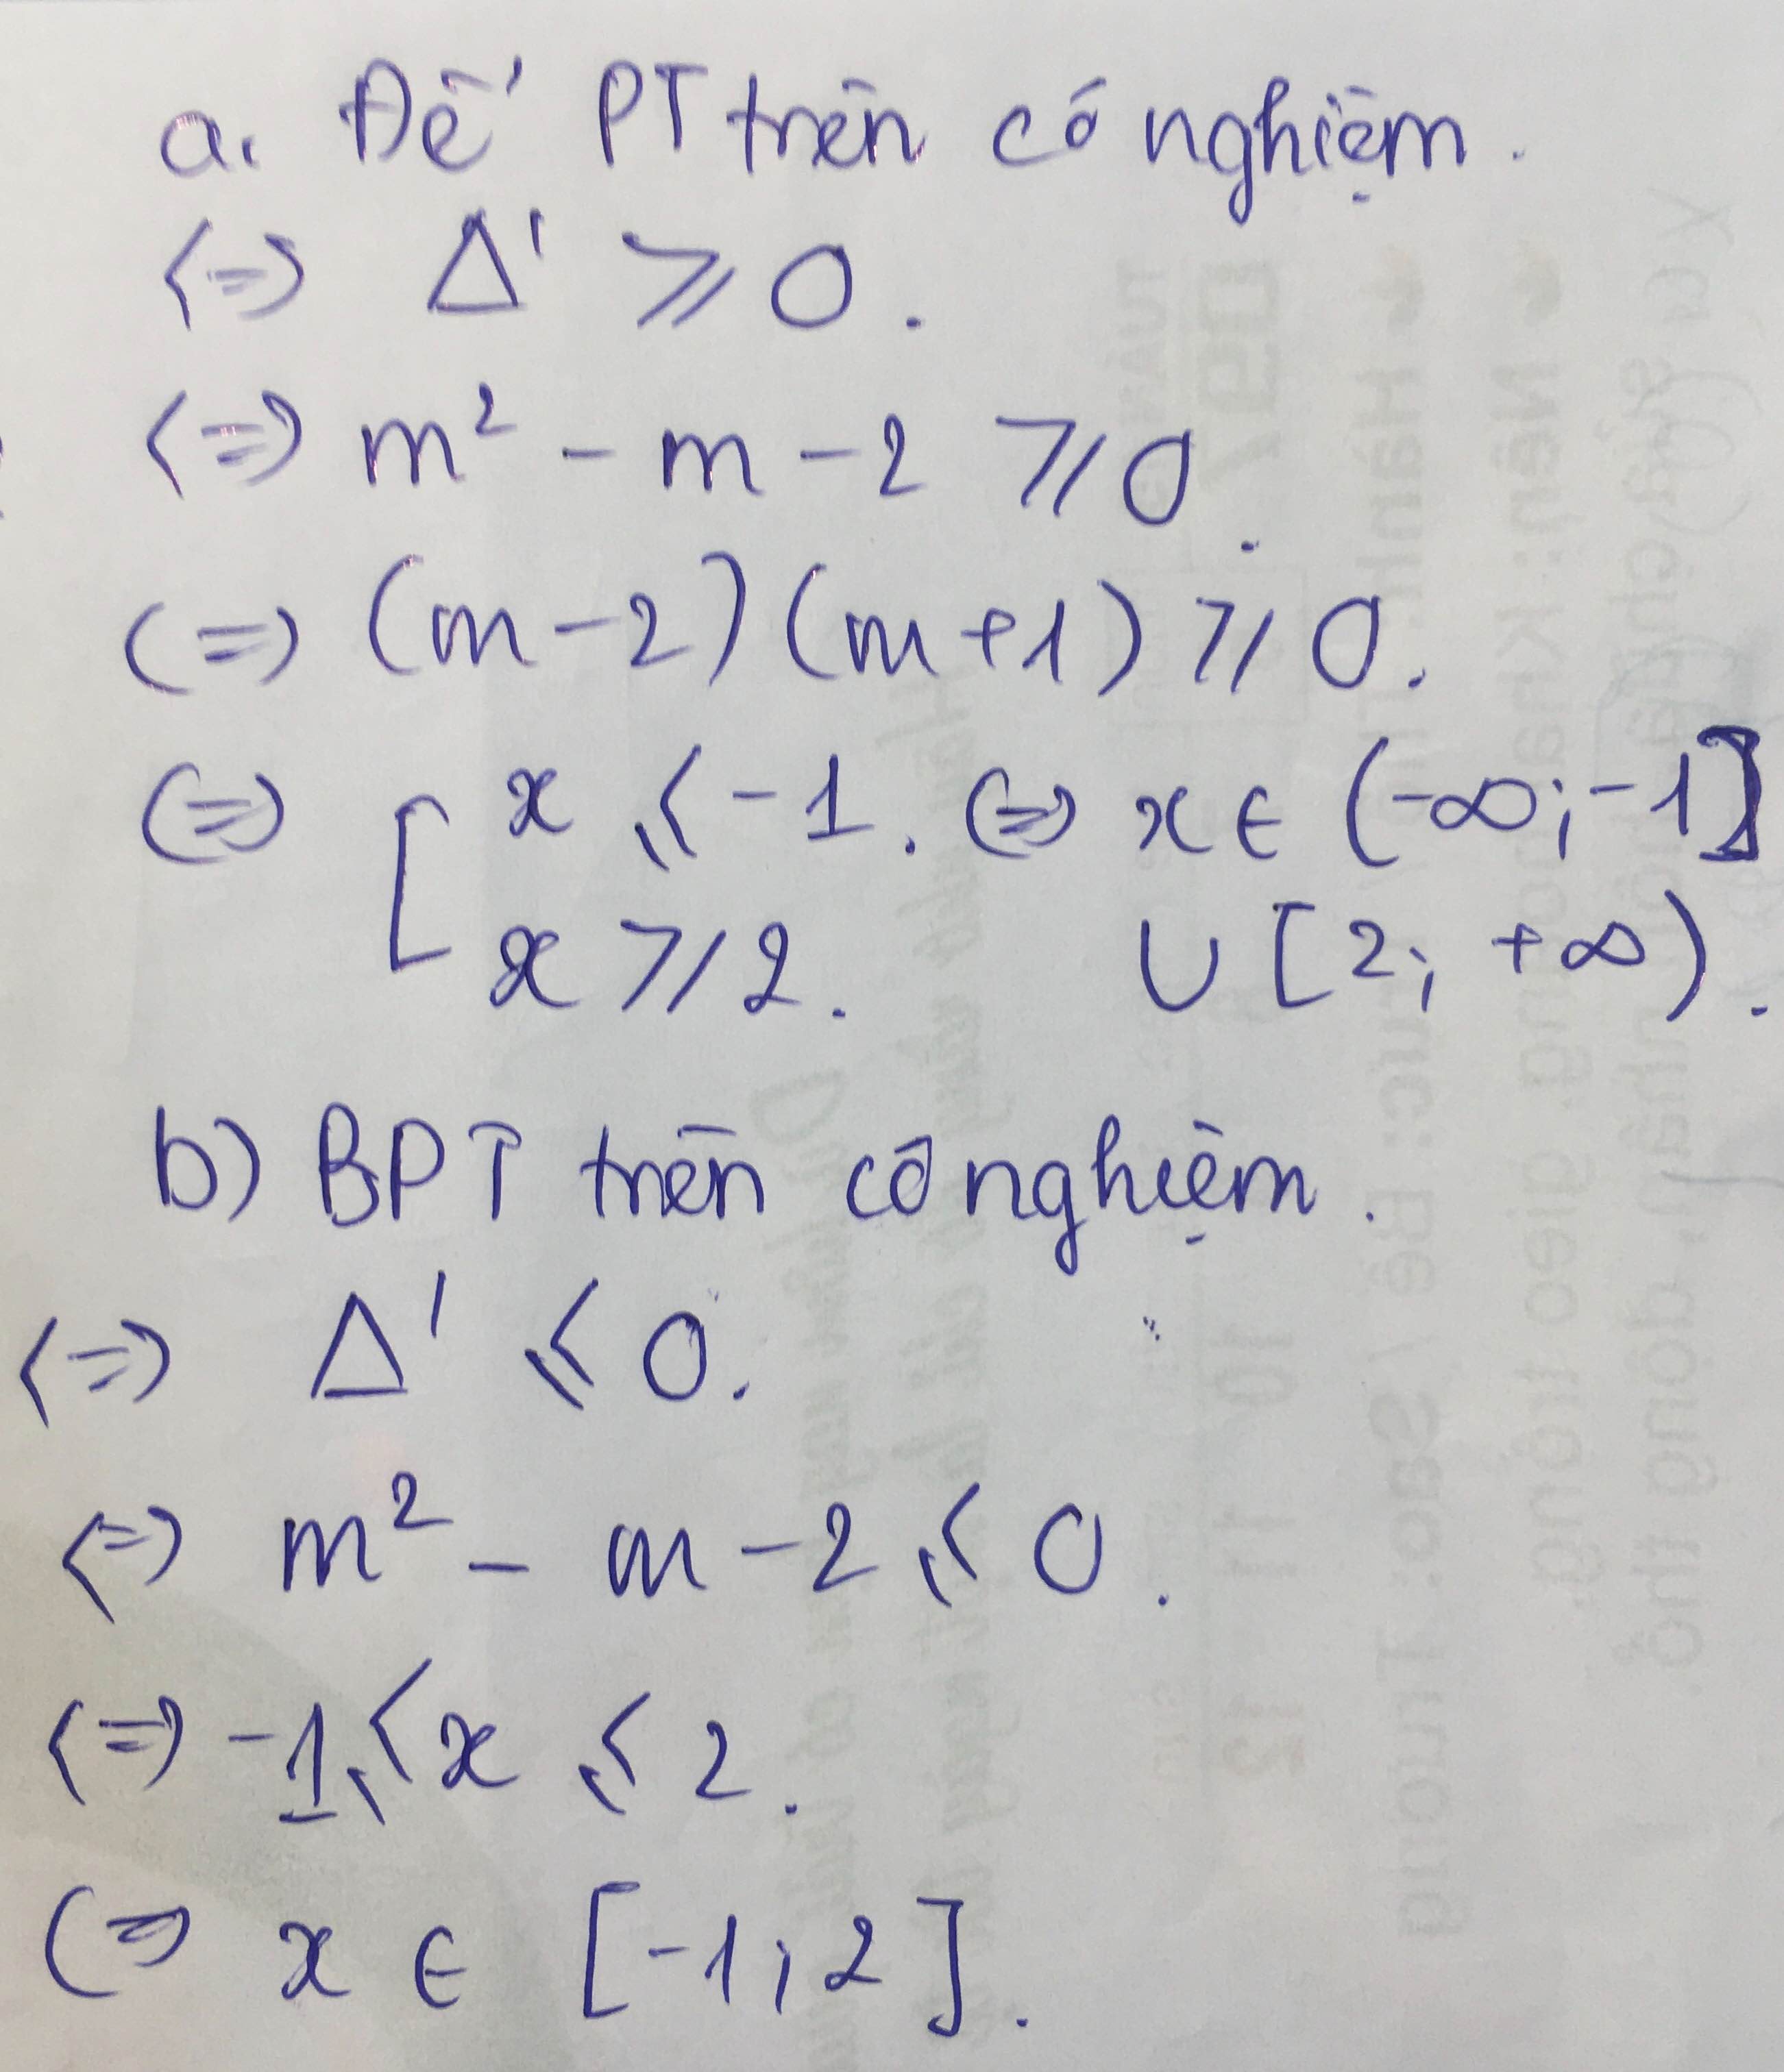 a. Để PT trên có nghiệm.
<=> Δ' ⩾ 0.
<=> m² - m - 2 ⩾ 0.
(=) (m-2)(m+1) ⩾ 0.
(=) [ x ⩽ -1. (=) x ∈ (-∞; -1]
x ⩾ 2. ∪ [2; +∞).
b) BPT trên có nghiệm.
<=> Δ' ⩽ 0.
<=> m² - m - 2 ⩽ 0.
<=> -1 ⩽ x ⩽ 2.
(=> x ∈ [-1; 2].